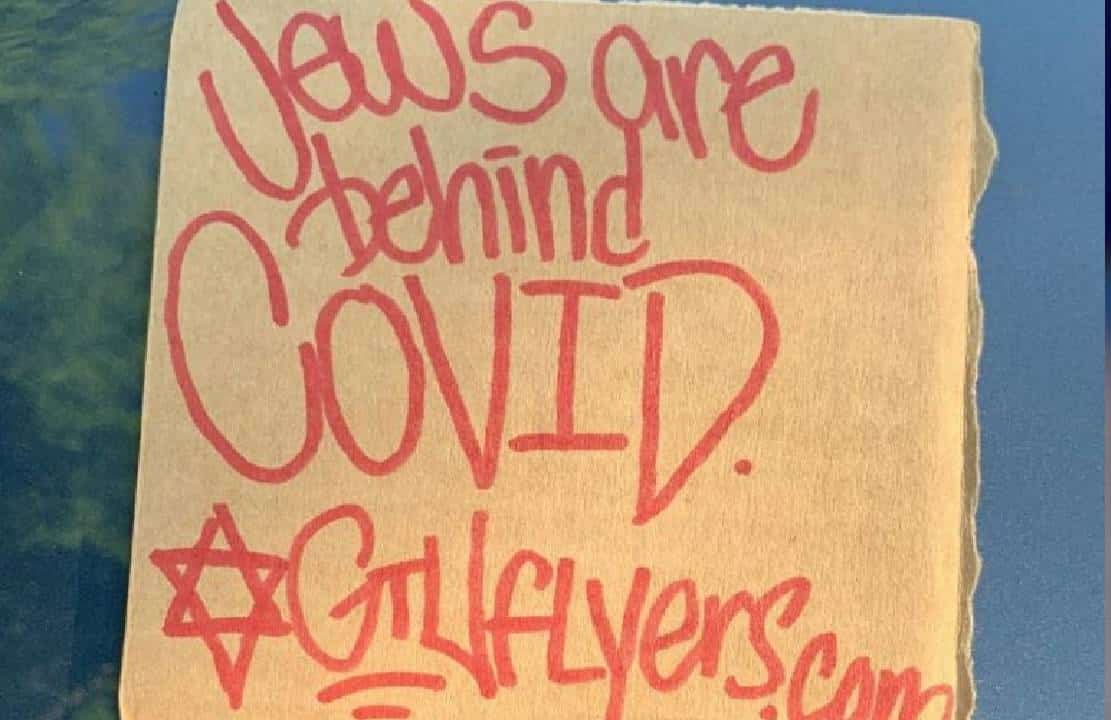 Jews are
behind
COVID.
✡GTVfLyers.com